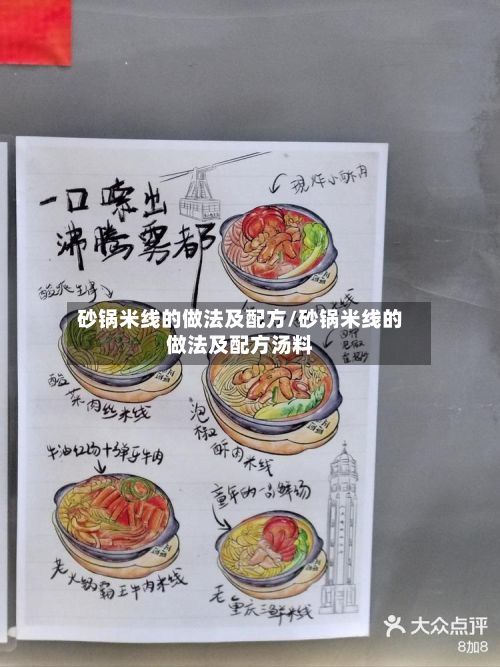 一口嗦出
沸腾雾都
现炸小酥肉
砂锅米线的做法及配方/砂锅米线的
做法及配方汤料
酸
菜肉丝米线
泡
椒
酥肉米线
牛油红汤+弹牙牛肉
老火锅霸王牛肉米线
童年的一品鲜汤
老重庆三鲜米线
大众点评
8加8